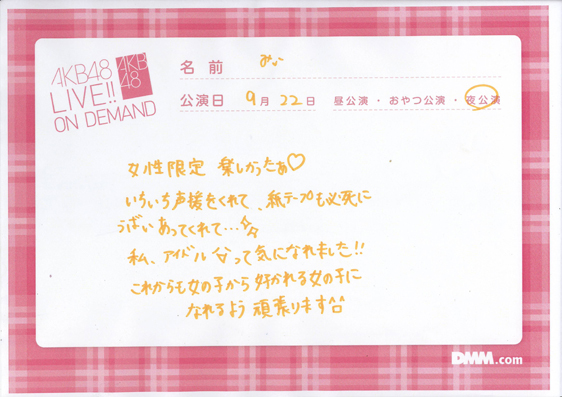 AKB48
LIVE!!
ON DEMAND
AKB
48
名前 みぃ
公演日 9月22日 昼公演・おやつ公演・夜公演
女性限定 楽しかったぁ♡
いちいち声援をくれて、紙テープも必死に
うばいあってくれて…✧✧
私、アイドル☆って気になれました!!
これからも女の子から好かれる女の子に
なれるよう頑張ります^^
DMM.com